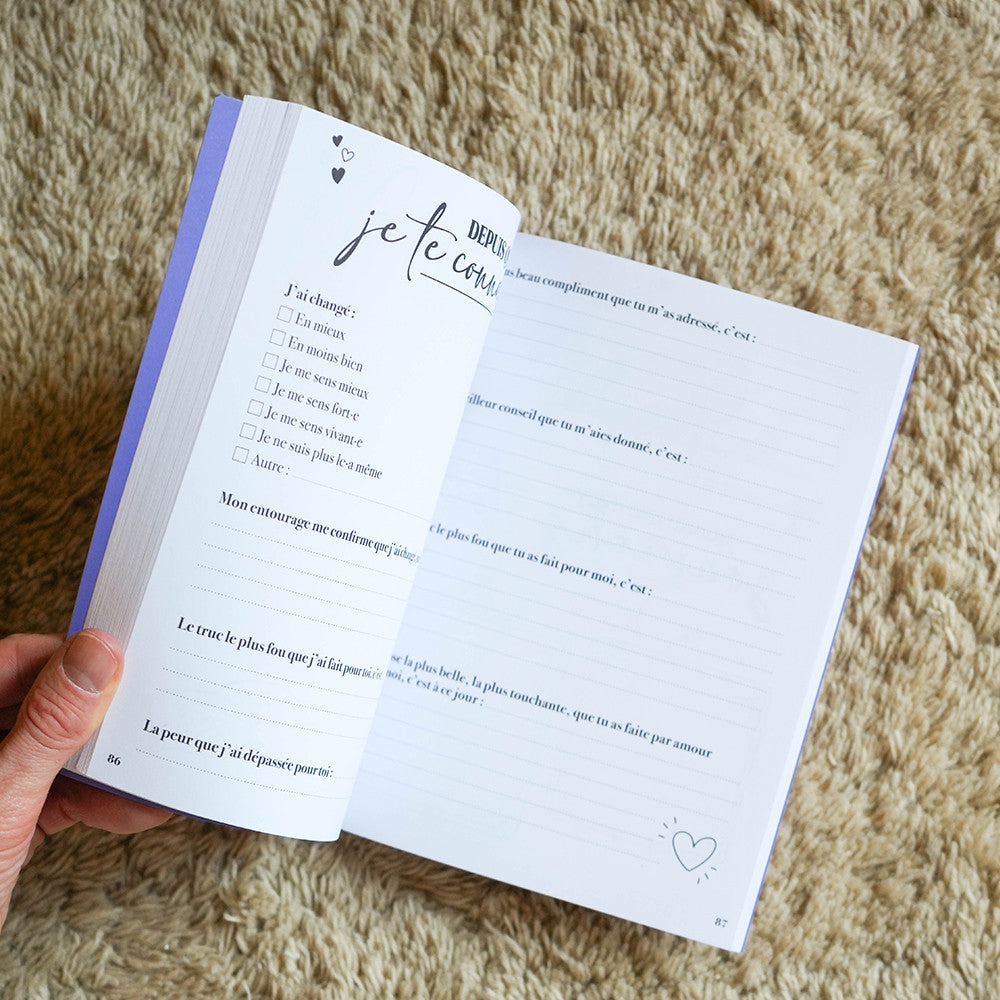 DEPUIS
je te
J'ai changé :
En mieux
En moins bien
Je me sens mieux
Je me sens fort·e
Je me sens vivant·e
Je ne suis plus le·a même
Autre :
Mon entourage me confirme que j'ai changé,
Le truc le plus fou que j'ai fait pour toi, c'est
La peur que j'ai dépassée pour toi :
86
beau compliment que tu m'as adressé, c'est :
conseil que tu m'aies donné, c'est :
le plus fou que tu as fait pour moi, c'est :
la plus belle, la plus touchante, que tu as faite par amour
moi, c'est à ce jour :
87